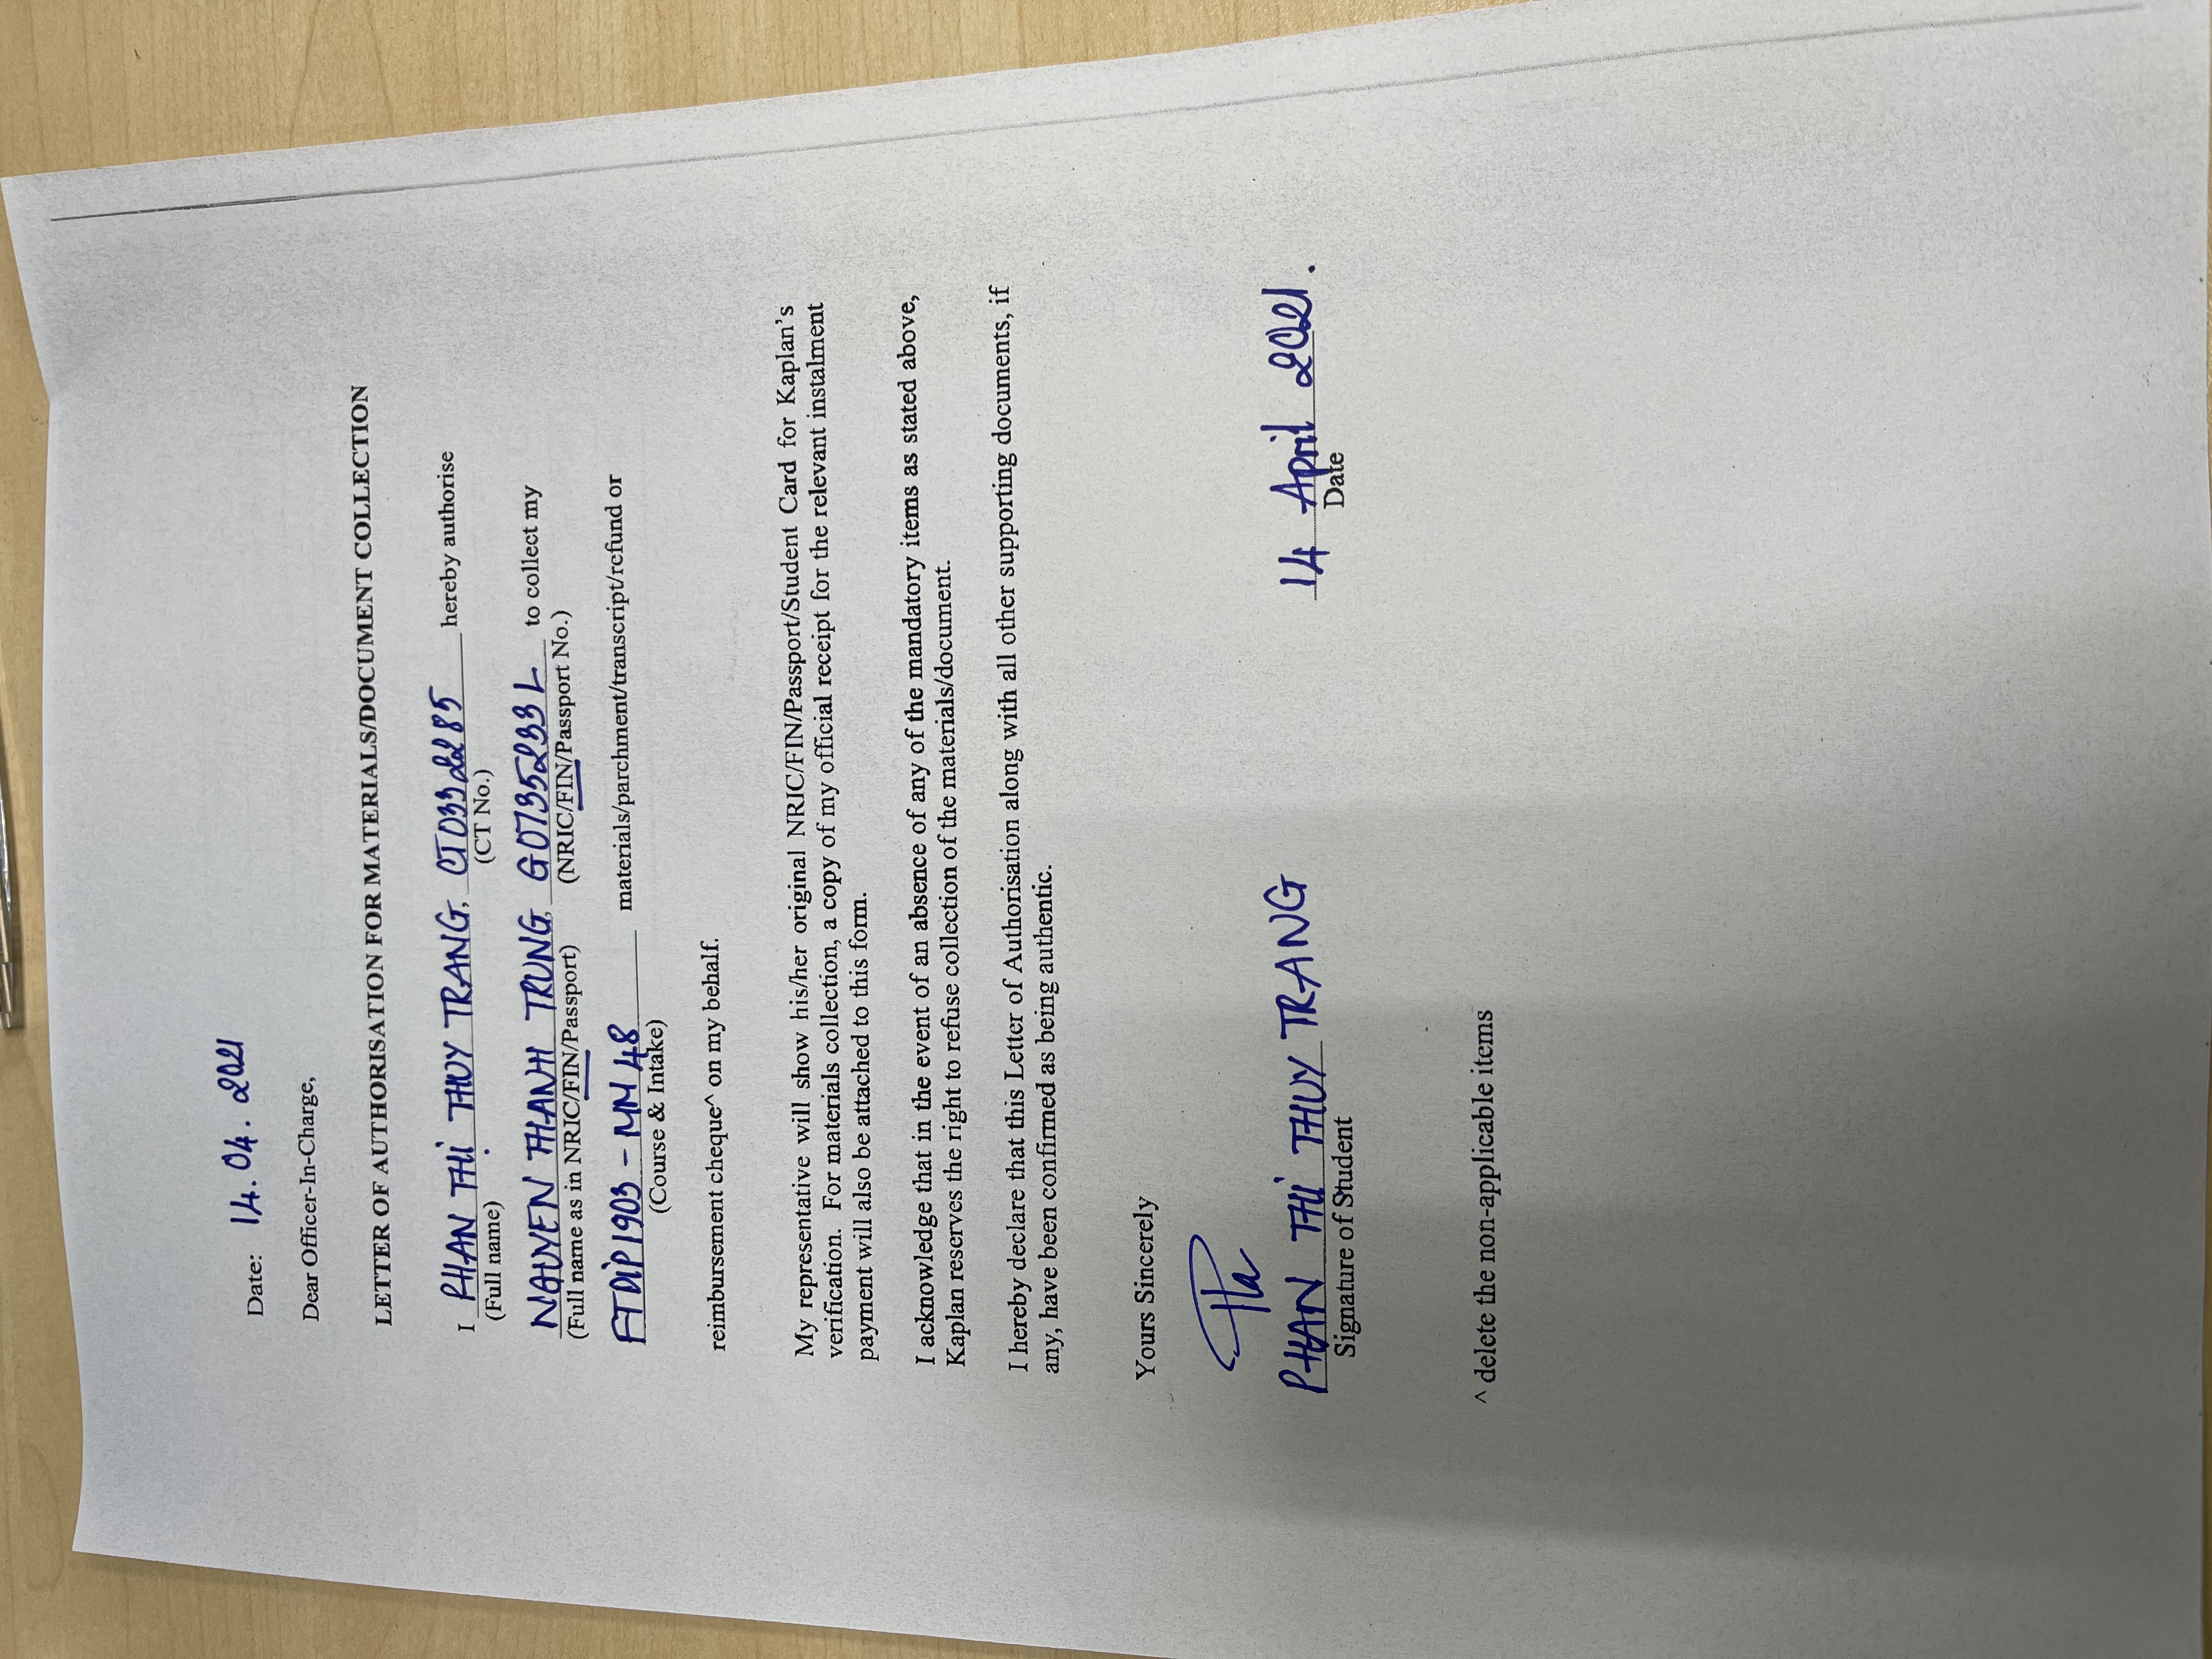 Date: 14.04.2021
Dear Officer-In-Charge,
LETTER OF AUTHORISATION FOR MATERIALS/DOCUMENT COLLECTION
I PHAN THỊ THUY TRANG, CT0332285 hereby authorise
(Full name) (CT No.)
NGUYEN THANH TRUNG, G0735233L to collect my
(Full name as in NRIC/FIN/Passport) (NRIC/FIN/Passport No.)
FTDiP1903 - MM 48 materials/parchment/transcript/refund or
(Course & Intake)
reimbursement cheque^ on my behalf.
My representative will show his/her original NRIC/FIN/Passport/Student Card for Kaplan's
verification. For materials collection, a copy of my official receipt for the relevant instalment
payment will also be attached to this form.
I acknowledge that in the event of an absence of any of the mandatory items as stated above,
Kaplan reserves the right to refuse collection of the materials/document.
I hereby declare that this Letter of Authorisation along with all other supporting documents, if
any, have been confirmed as being authentic.
Yours Sincerely
PHAN THỊ THUY TRANG 14 April 2021.
Signature of Student Date
^ delete the non-applicable items